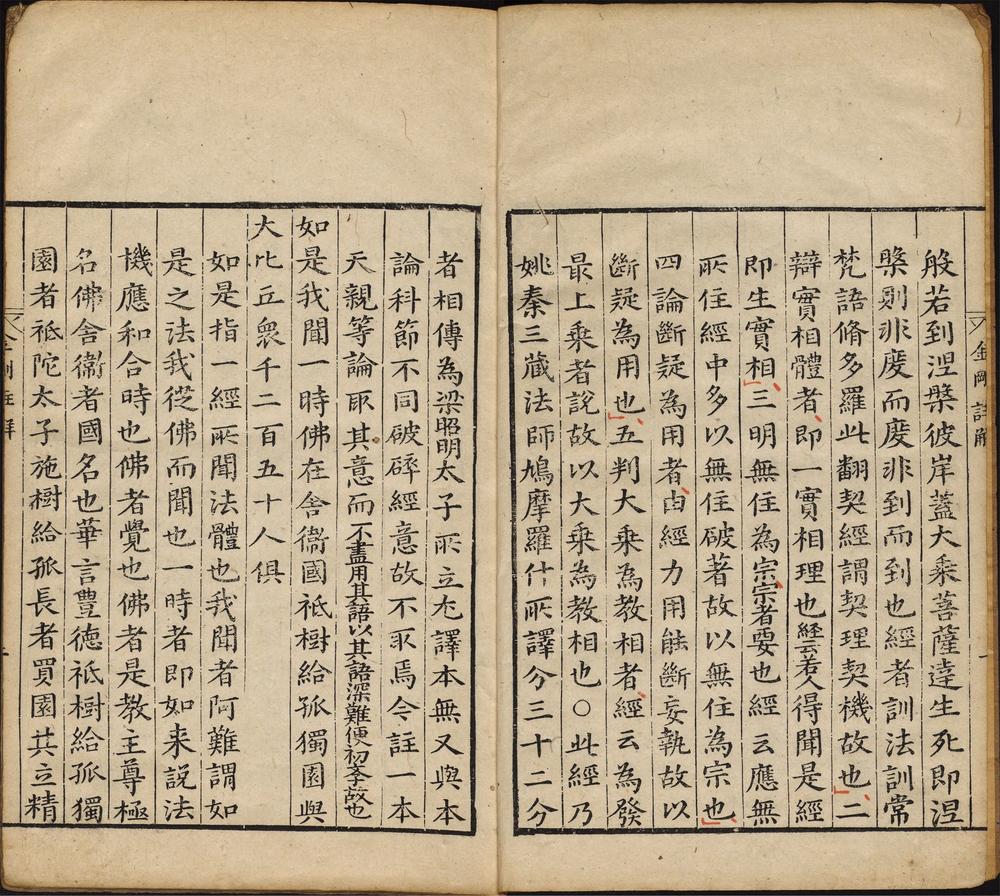 金剛註解
一
般若到涅槃彼岸蓋大乘菩薩達生死即涅
槃則非度而度非到而到也經者訓法訓常
梵語脩多羅此翻契經謂契理契機故也二
辯實相體者即一實相理也經云若人得聞是經
即生實相三明無住為宗宗者要也經云應無
所住經中多以無住破著故以無住為宗也
四論斷疑為用者由經力用能斷妄執故以
斷疑為用也五判大乘為教相者經云為發
最上乘者說故以大乘為教相也○此經乃
姚秦三藏法師鳩摩羅什所譯分三十二分
者相傳為梁昭明太子所立元譯本無又與本
論科節不同破碎經意故不取焉今註一本
天親等論取其意而不盡用其語以其語深難便初學故也
如是我聞一時佛在舍衞國祇樹給孤獨園與
大比丘衆千二百五十人俱
如是指一經所聞法體也我聞者阿難謂如
是之法我從佛而聞也一時者即如来說法
機應和合時也佛者覺也佛者是教主尊極
名佛舍衞者國名也華言豐德祇樹給孤獨
園者祇陀太子施樹給孤長者買園共立精